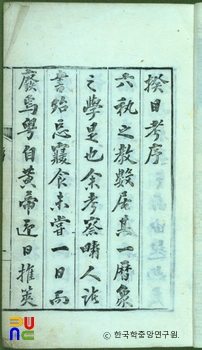 揆日考序
六執之敎數居其一曆象
之學是也余考察疇人諸
書殆忘寢食未嘗一日而
廢焉粤自黃帝迎日推莢
ⓒ 한국학중앙연구원.